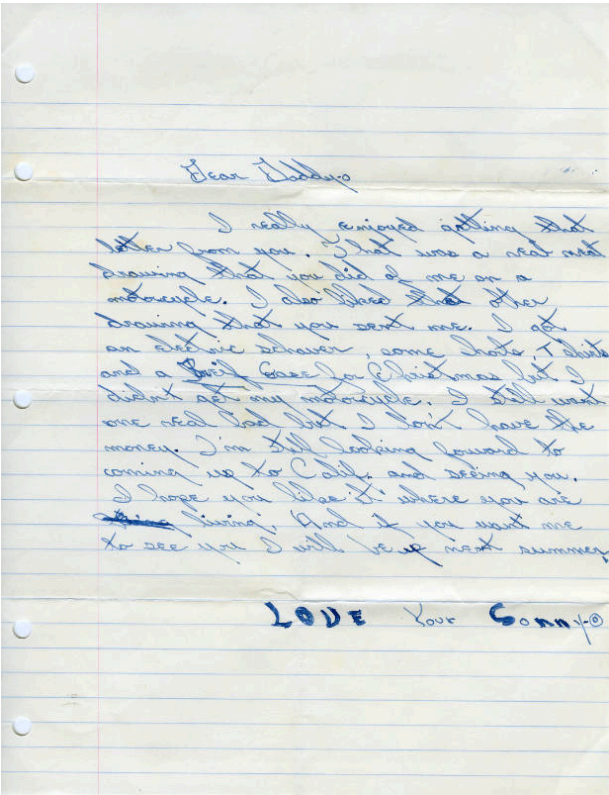 Dear Daddy-o
I really enjoyed getting that
letter from you. That was a real neat
drawing that you did of me on a
motorcycle. I also liked the other
drawing that you sent me. I got
an electric schaver, some shots, T shirts
and a Brief Case for Christmas but I
didn't get my motorcycle. I still want
one real bad but I don't have the
money. I'm still looking forward to
coming up to Calif. and seeing you.
I hope you like it where you are
living. And if you want me
to see you I will be up next summer,
LOVE Your Sonny-O